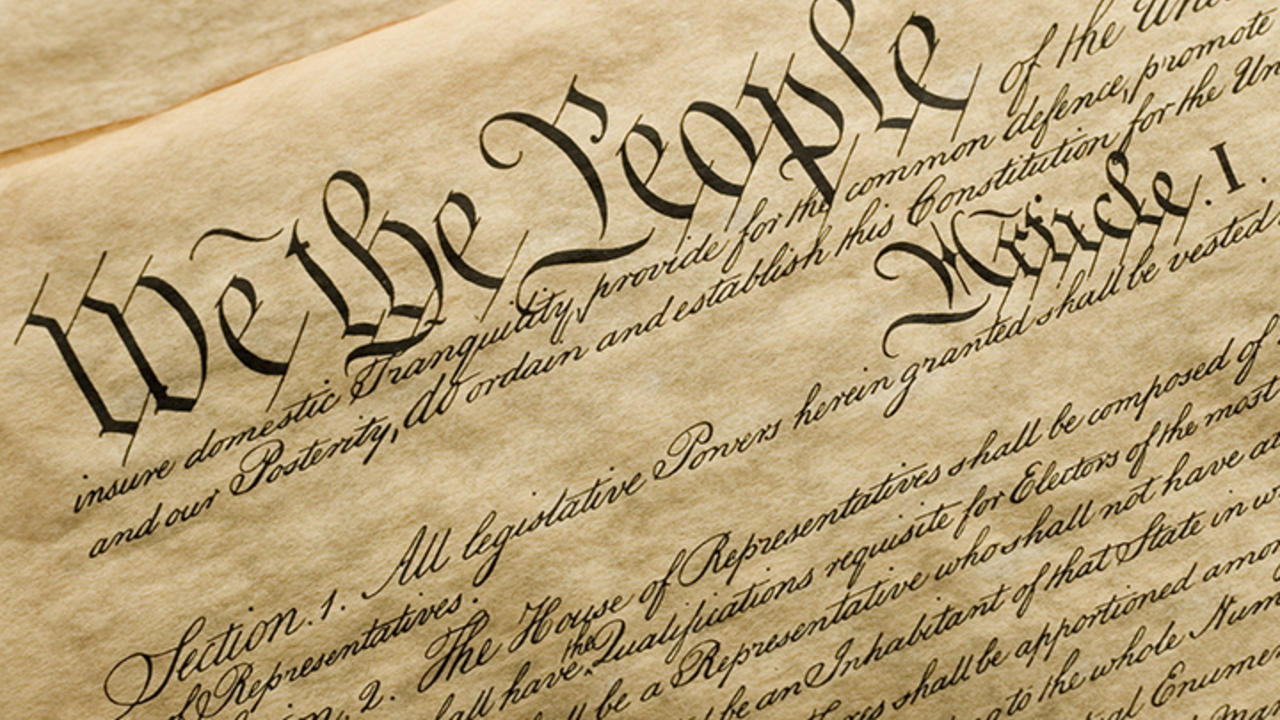 We the People of the Unit
insure domestic Tranquility, provide for the common defence, promote
and our Posterity, do ordain and establish this Constitution for the Un
Article. I.
Section. 1. All legislative Powers herein granted shall be vested
of Representatives.
ion. 2. The House of Representatives shall be composed of
all have the Qualifications requisite for Electors of the most
ll be a Representative who shall not have
be an Inhabitant of that State in
shall be apportioned amon
to the whole Num
Enumer